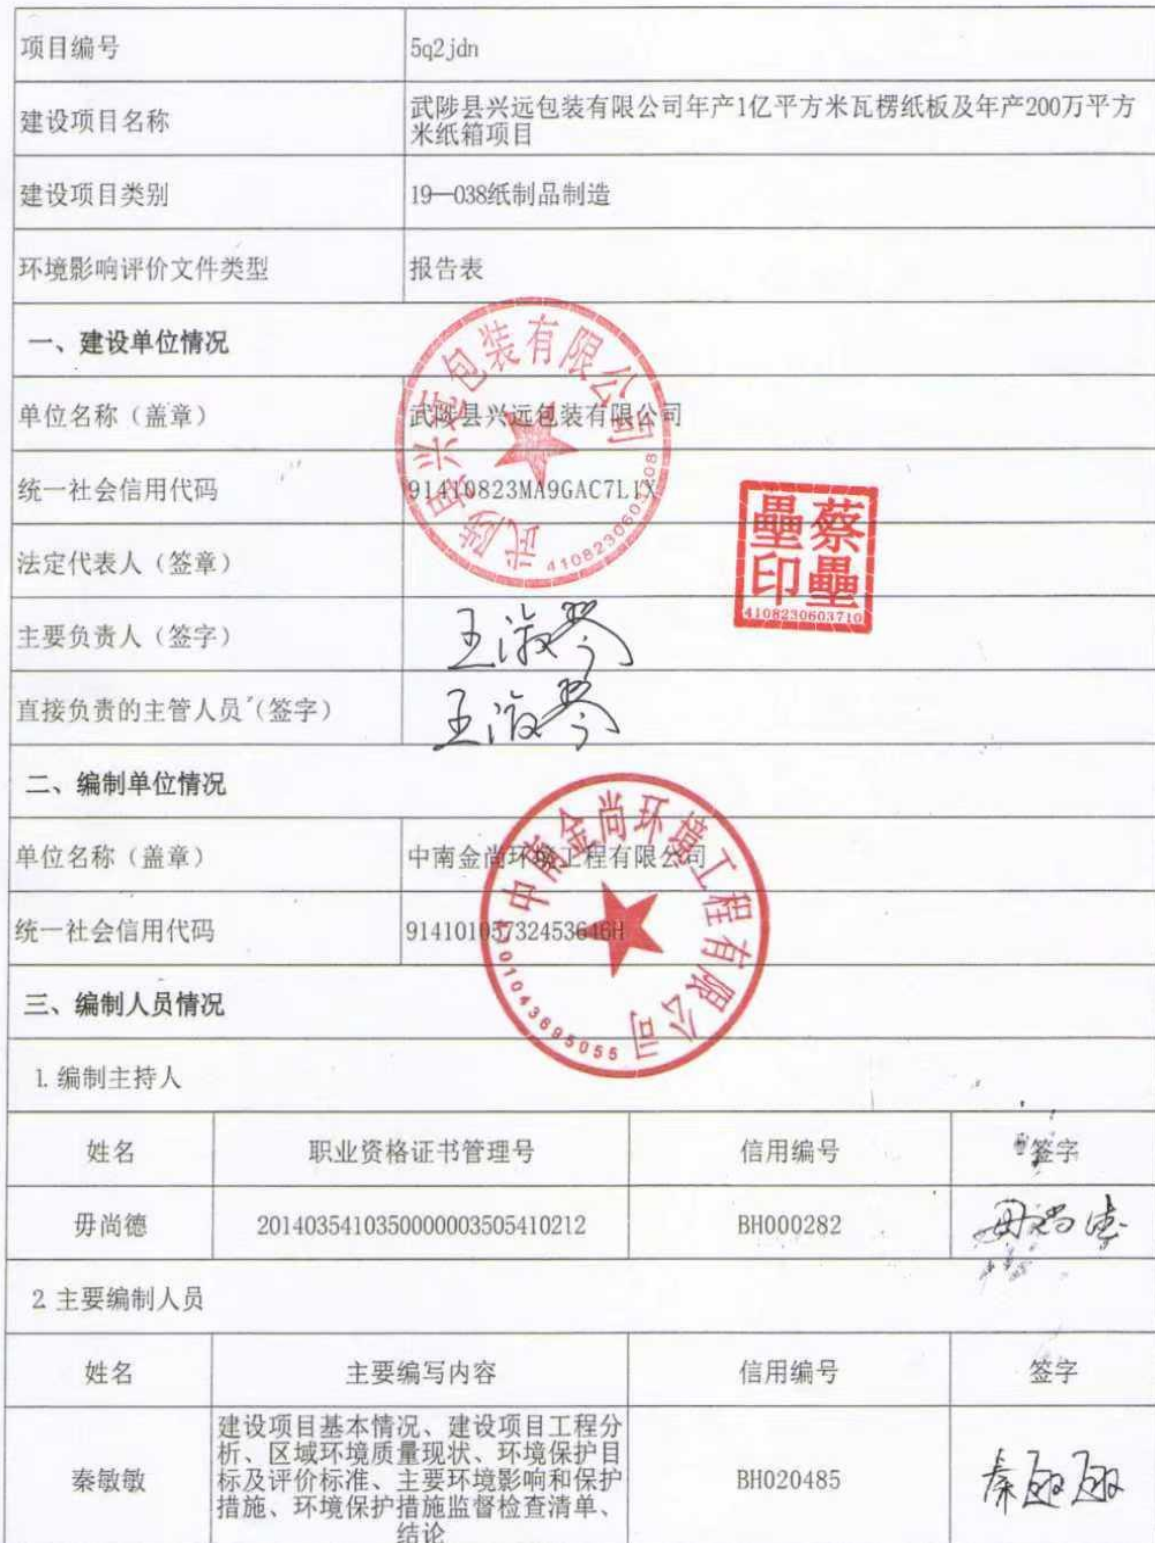 项目编号 5q2jdn
建设项目名称 武陟县兴远包装有限公司年产1亿平方米瓦楞纸板及年产200万平方
米纸箱项目
建设项目类别 19—038纸制品制造
环境影响评价文件类型 报告表
一、建设单位情况
单位名称（盖章） 武陟县兴远包装有限公司
统一社会信用代码 91410823MA9GAC7L1X
法定代表人（签章）
蔡壘
壘印
4108230603710
主要负责人（签字） 王淑琴
直接负责的主管人员（签字） 王淑琴
武陟县兴远包装有限公司
二、编制单位情况
单位名称（盖章） 中南金尚环境工程有限公司
统一社会信用代码
中南金尚环境工程有限公司
三、编制人员情况
1.编制主持人
姓名 职业资格证书管理号 信用编号 签字
毋尚德 2014035410350000003505410212 BH000282 毋尚德
2 主要编制人员
姓名 主要编写内容 信用编号 签字
建设项目基本情况、建设项目工程分
析、区域环境质量现状、环境保护目
秦敏敏 标及评价标准、主要环境影响和保护 BH020485 秦敏敏
措施、环境保护措施监督检查清单、
结论